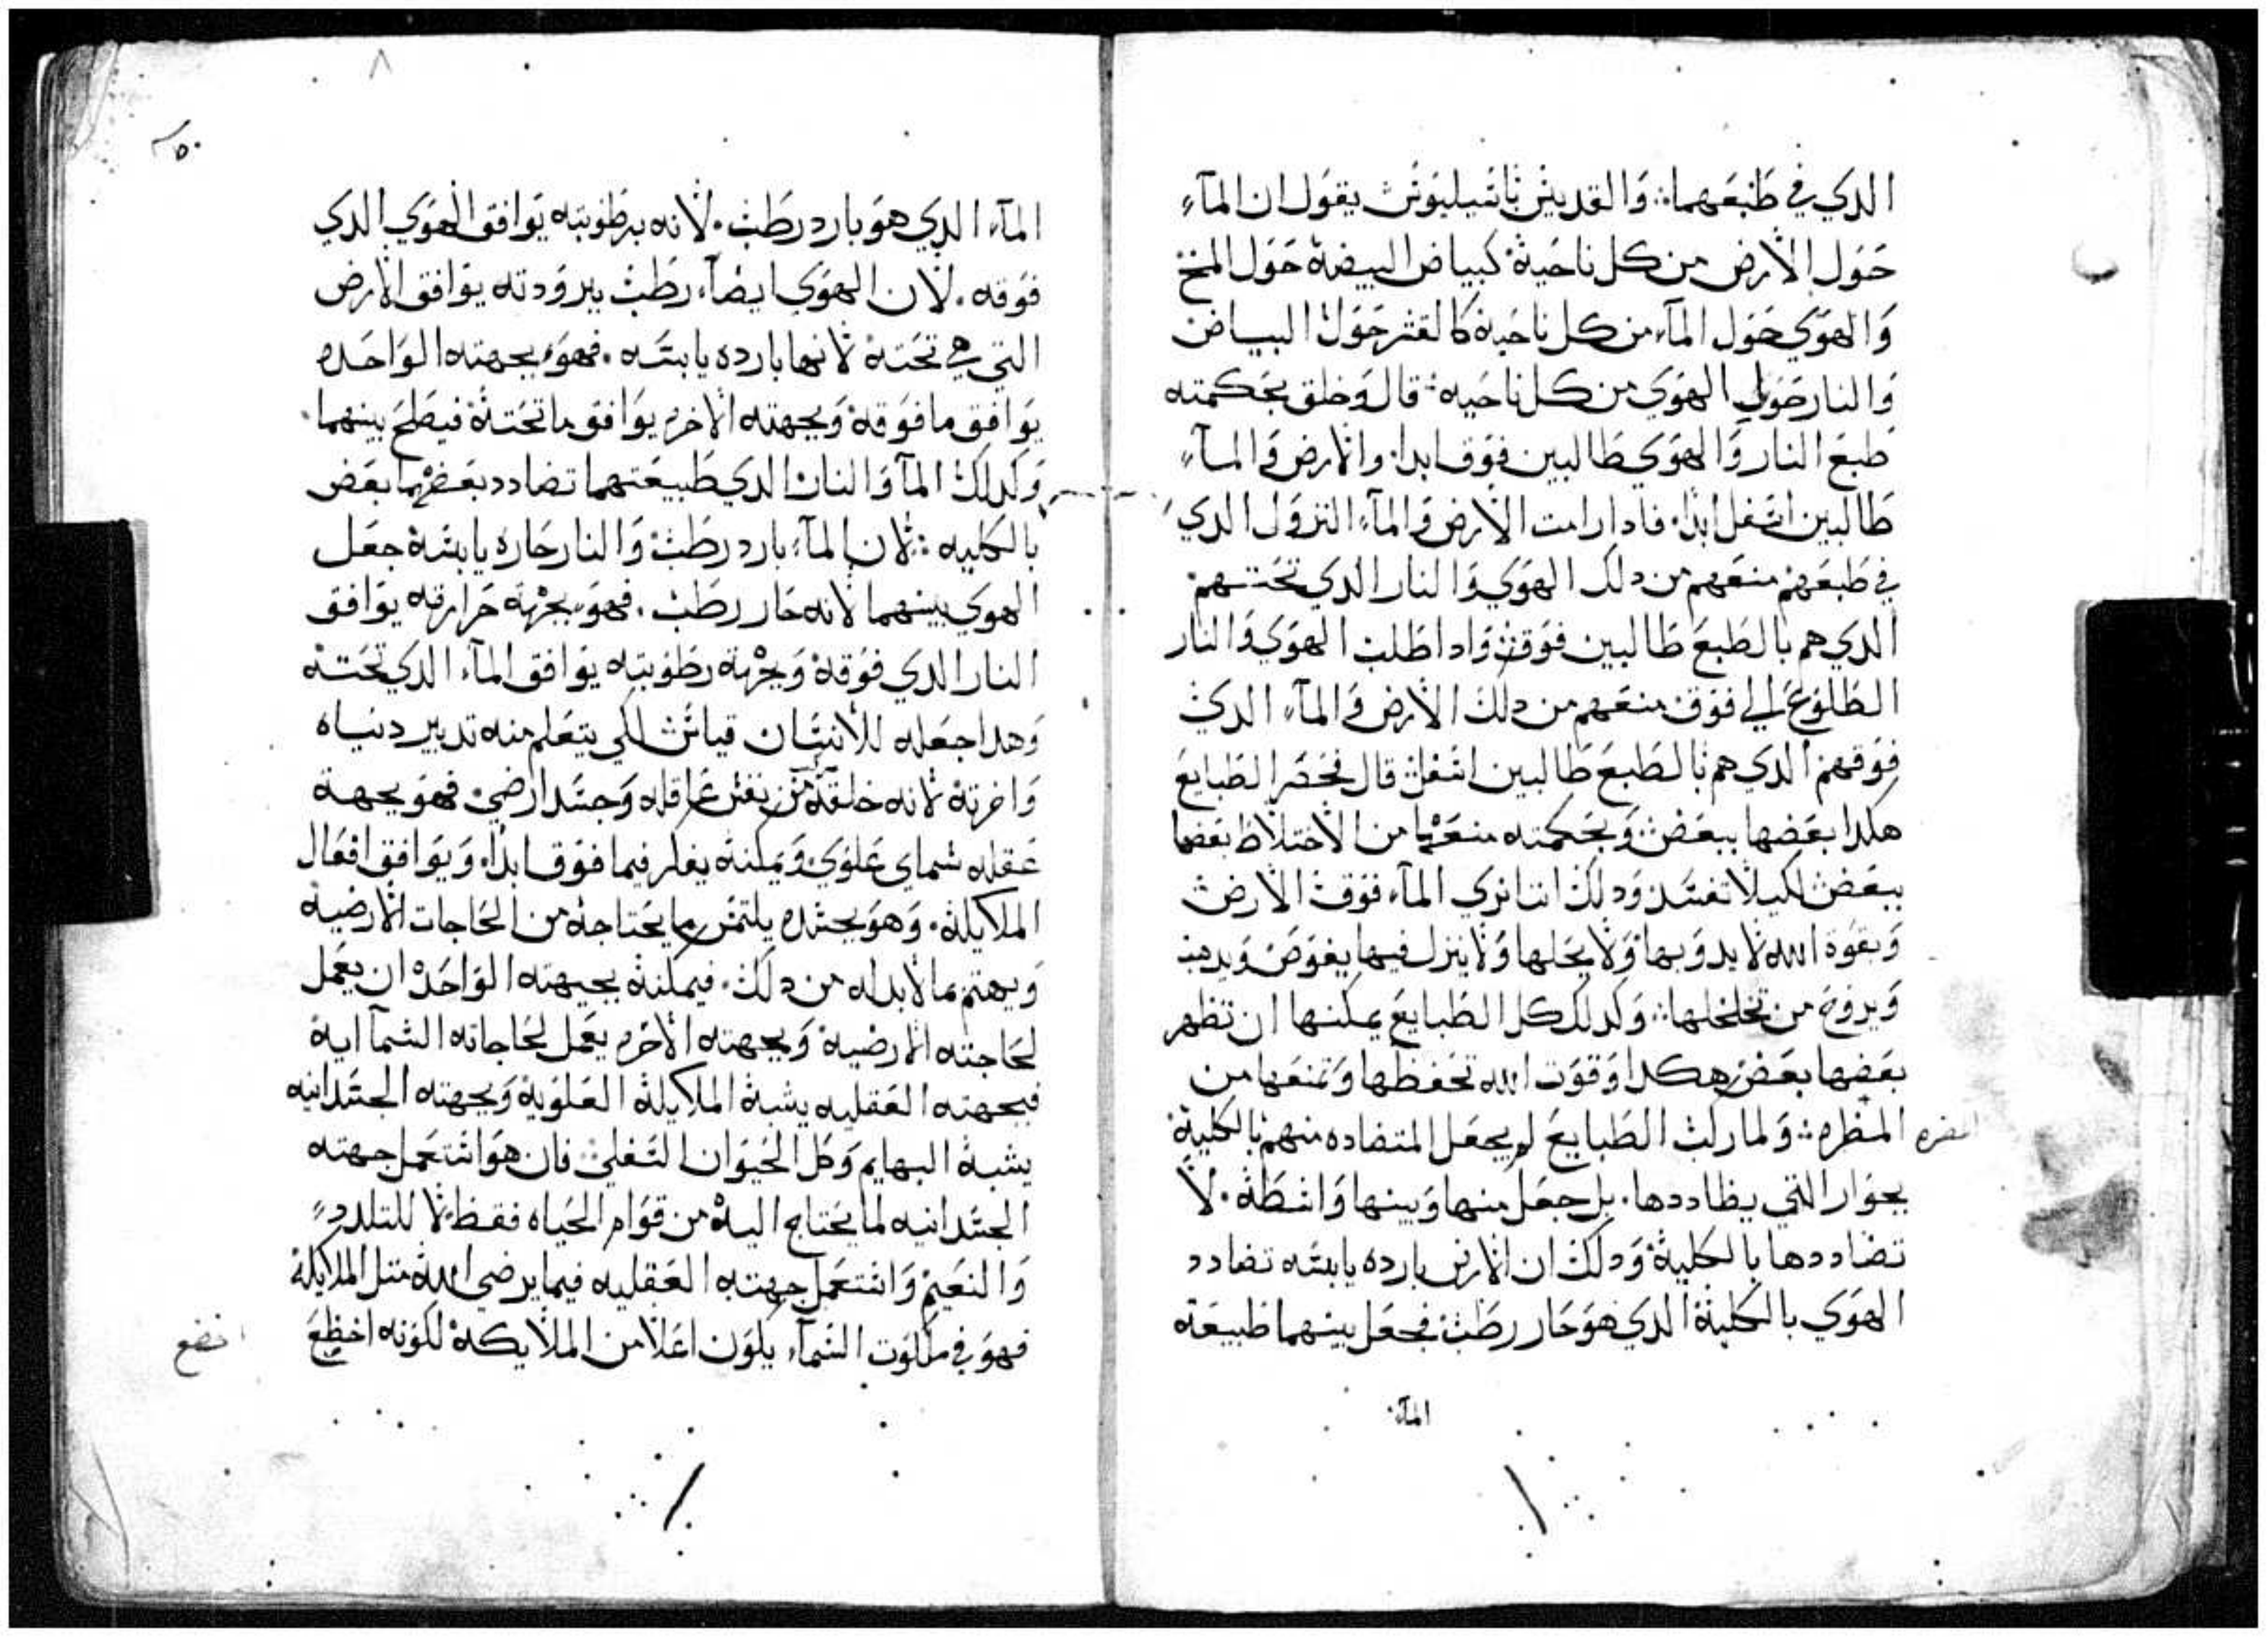 الدي في طبعهما: والقديس باسيليوس يقول ان المآء
حول الارض من كل ناحية كبياض البيضة حول المخ
والهوي حول المآء من كل ناحية كالقشر حول البياض
والنار حول الهوي من كل ناحيه: قال وخلق بحكمته
طبع النار والهوي طالبين فوق ابدا. والارض والمآء
طالبين اسفل ابدا. فادا رامت الارض والمآء النزول الدي
في طبعهم منعهم من دلك الهوي والنار الدي تحتهم
الدي هم بالطبع طالبين فوق. وادا طلبت الهوي والنار
الطلوع الي فوق منعهم من دلك الارض والمآء الدي
فوقهم الدي هم بالطبع طالبين اسفل قال فحصر الطبايع
هكدا بعضها ببعض وبحكمته منعها من الاختلاط بعضها
ببعض لكيلا تفسد ودلك اننا نري المآء فوق الارض
وبقوة الله لا يدوبها ولا يحلها ولا ينزل فيها يغوص ويدهب
ويروح من تخلخلها: وكدلك كل الطبايع يمكنها ان تظهر
بعضها بعض هكدا وقوت الله تحفظها وتمنعها من
المظره: ولما ركب الطبايع لم يجعل المتضاده منهم بالكلية المضره
بجوار التي يظاددها. بل جعل منها وبينها واسطة. لا
تضاددها بالكلية ودلك ان الارض بارده يابسه تضادد
الهوي بالكلية الدي هو حار رطب فجعل بينهما طبيعة
المآء
٨
المآء الدي هو بارد رطب. لانه برطوبته يوافق الهوي الدي
فوقه. لان الهوي ايضآ رطب ببرودته يوافق الارض
التي هي تحته لانها بارده يابسه. فهو بجهته الواحده
يوافق ما فوقه وبجهته الاخري يوافق ما تحته فيصلح بينهما.
وكدلك المآ والنار الدي طبيعتهما تضادد بعضها بعض
بالكليه: لان المآء بارد رطب والنار حاره يابسة جعل
الهوي بينهما لانه حار رطب. فهو بجهة حرارته يوافق
النار الدي فوقه وبجهة رطوبته يوافق المآء الدي تحته
وهدا جعله للانسان قياس لكي يتعلم منه تدبير دنياه
واخرته لانه خلقه من نفس عاقله وجسد ارضي فهو بجهة
عقله سماي علوي ويمكنه يفكر فيما فوق ابدا. ويوافق افعال
الملايكة. وهو بجسده يلتمس ما يحتاجه من الحاجات الارضيه
ويهتم بما لابد له من دلك. فيمكنه بجهته الواحده ان يعمل
لحاجته الارضية وبجهته الاخري يعمل لحاجاته السمآاية
فبجهته العقليه يشبه الملايكة العلوية وبجهته الجسدانيه
يشبه البهايم وكل الحيوان السفلي فان هو استعمل جهته
الجسدانيه لما يحتاج اليه من قوام الحياه فقط لا للتلدد
والنعيم واستعمل جهته العقليه فيما يرضي الله متل الملايكة
فهو في ملكوت السمآء يكون اعلا من الملايكة لكونه اخظع اخضع